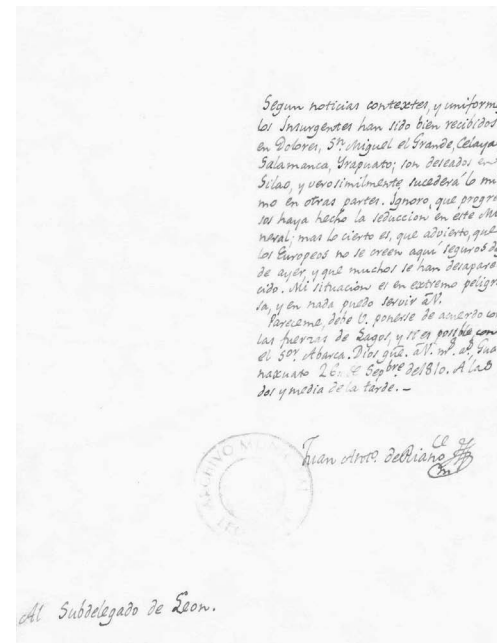 Segun noticias contextes, y uniform
los Insurgentes han sido bien recibidos
en Dolores, Sn. Miguel el Grande, Celaya
Salamanca, Yrapuato; son deseados en
Silao, y verosimilmente, sucederá lo mis
mo en otras partes. Ignoro, que progre
sos haya hecho la seduccion en este Mi
neral; mas lo cierto es, que advierto, que
los Europeos no se creen aquí seguros de
de ayer, y que muchos se han desapare
cido. Mi situacion es en extremo peligro
sa, y en nada puedo servir á V.
Pareceme, debe V. ponerse de acuerdo con
las fuerzas de Lagos, y si es posible con
el Sor. Abarca. Dios gue. á V. ms. as. Gua
naxuato 26 de Sepbre de 1810. A las
dos y media de la tarde.—
Juan Anto. de Riaño
ARCHIVO MUNICIPAL
Al Subdelegado de Leon.